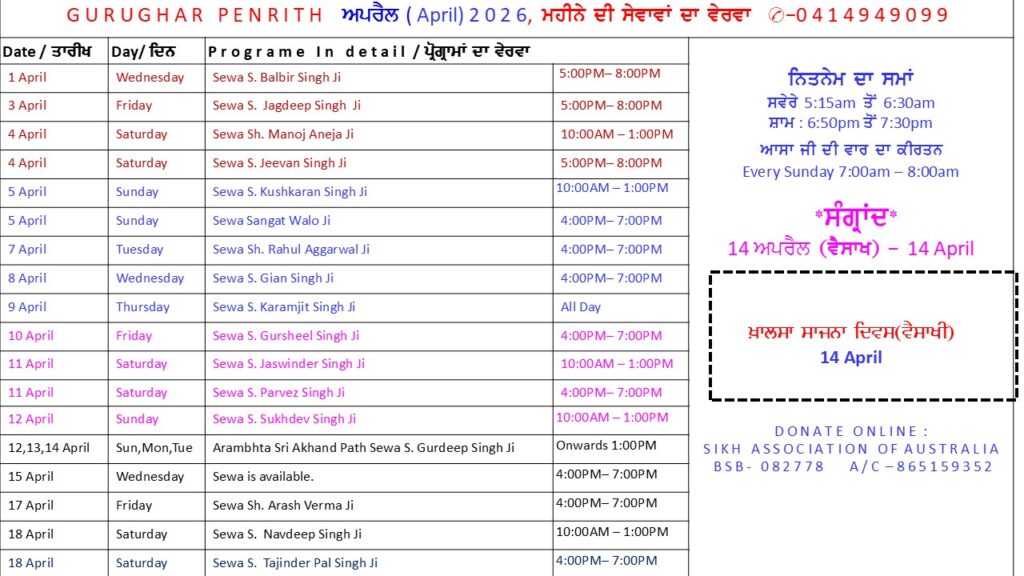 GURUGHAR PENRITH ਅਪਰੈਲ ( April) 2026, ਮਹੀਨੇ ਦੀ ਸੇਵਾਵਾਂ ਦਾ ਵੇਰਵਾ ✆–0414949099
Date / ਤਾਰੀਖ Day/ ਦਿਨ Programe In detail / ਪ੍ਰੋਗ੍ਰਾਮਾਂ ਦਾ ਵੇਰਵਾ
1 April Wednesday Sewa S. Balbir Singh Ji 5:00PM– 8:00PM
3 April Friday Sewa S. Jagdeep Singh Ji 5:00PM– 8:00PM
4 April Saturday Sewa Sh. Manoj Aneja Ji 10:00AM – 1:00PM
4 April Saturday Sewa S. Jeevan Singh Ji 5:00PM– 8:00PM
5 April Sunday Sewa S. Kushkaran Singh Ji 10:00AM – 1:00PM
5 April Sunday Sewa Sangat Walo Ji 4:00PM– 7:00PM
7 April Tuesday Sewa Sh. Rahul Aggarwal Ji 4:00PM– 7:00PM
8 April Wednesday Sewa S. Gian Singh Ji 4:00PM– 7:00PM
9 April Thursday Sewa S. Karamjit Singh Ji All Day
10 April Friday Sewa S. Gursheel Singh Ji 4:00PM– 7:00PM
11 April Saturday Sewa S. Jaswinder Singh Ji 10:00AM – 1:00PM
11 April Saturday Sewa S. Parvez Singh Ji 4:00PM– 7:00PM
12 April Sunday Sewa S. Sukhdev Singh Ji 10:00AM – 1:00PM
12,13,14 April Sun,Mon,Tue Arambhta Sri Akhand Path Sewa S. Gurdeep Singh Ji Onwards 1:00PM
15 April Wednesday Sewa is available. 4:00PM– 7:00PM
17 April Friday Sewa Sh. Arash Verma Ji 4:00PM– 7:00PM
18 April Saturday Sewa S. Navdeep Singh Ji 10:00AM – 1:00PM
18 April Saturday Sewa S. Tajinder Pal Singh Ji 4:00PM– 7:00PM
ਨਿਤਨੇਮ ਦਾ ਸਮਾਂ
ਸਵੇਰੇ 5:15am ਤੋਂ 6:30am
ਸ਼ਾਮ : 6:50pm ਤੋਂ 7:30pm
ਆਸਾ ਜੀ ਦੀ ਵਾਰ ਦਾ ਕੀਰਤਨ
Every Sunday 7:00am – 8:00am
*ਸੰਗ੍ਰਾਂਦ*
14 ਅਪਰੈਲ (ਵੈਸਾਖ) – 14 April
ਖ਼ਾਲਸਾ ਸਾਜਨਾ ਦਿਵਸ(ਵੈਸਾਖੀ)
14 April
DONATE ONLINE :
SIKH ASSOCIATION OF AUSTRALIA
BSB- 082778 A/C –865159352